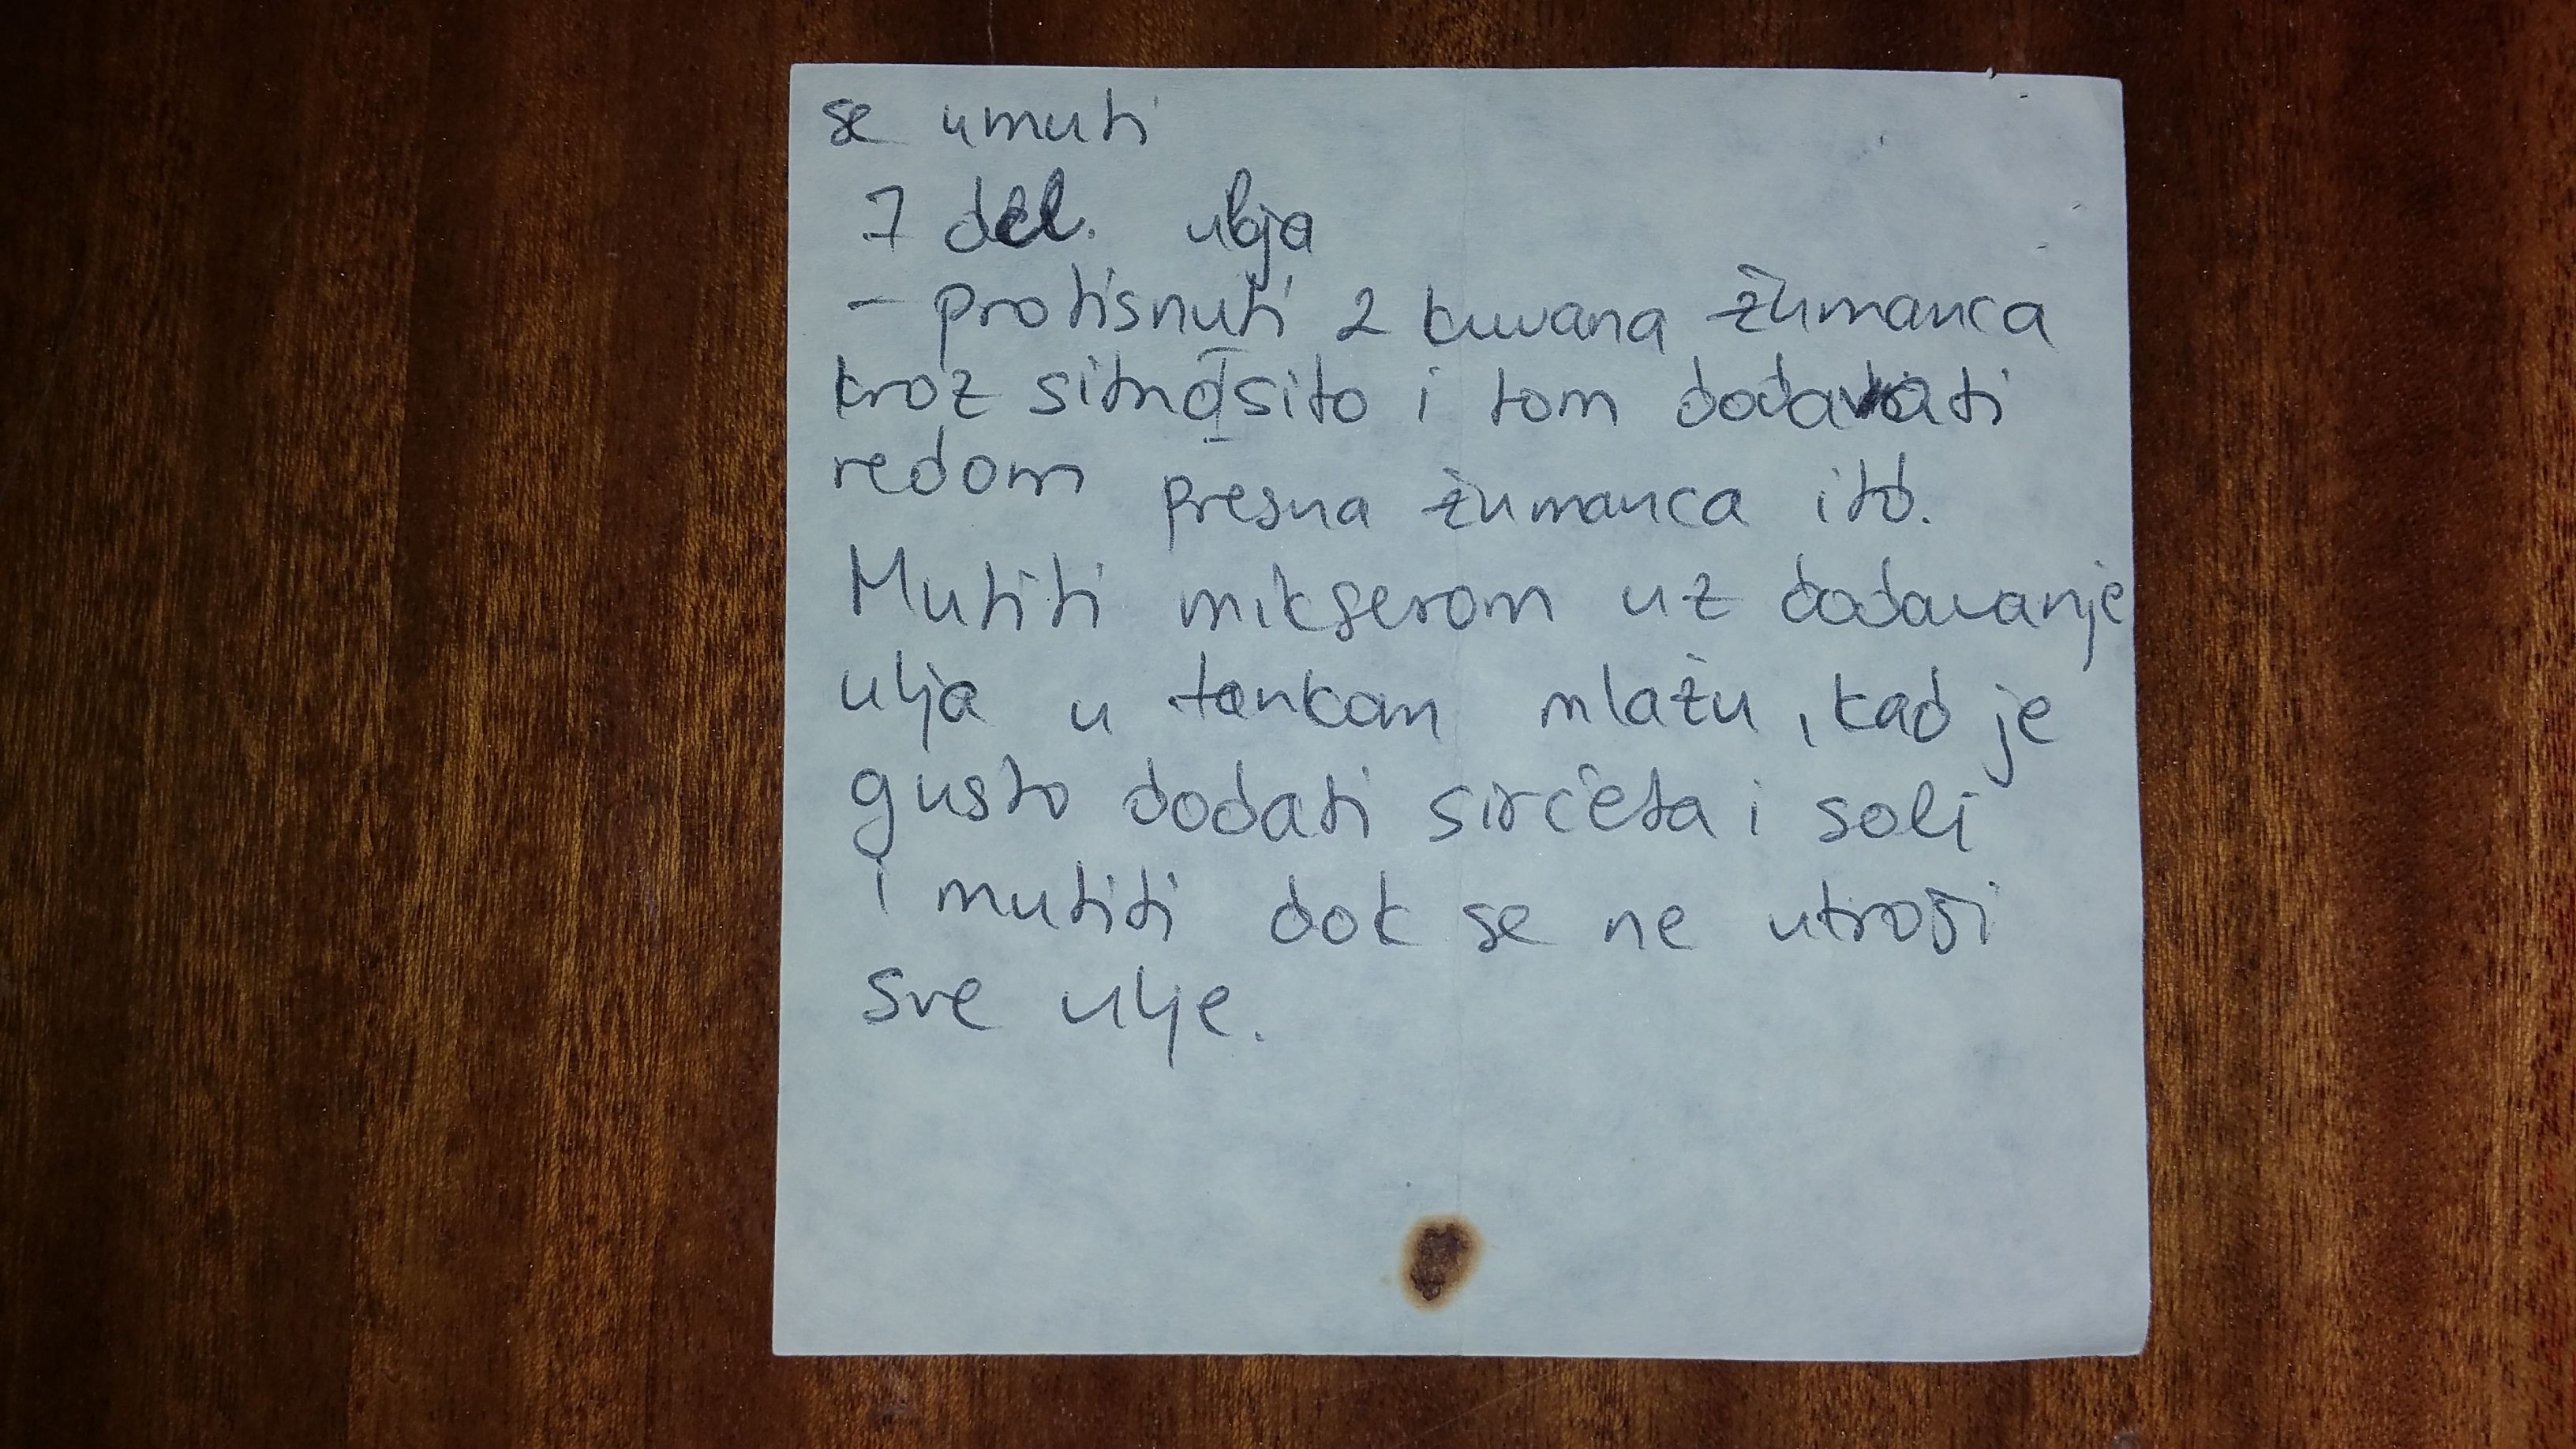 se umuti
7 del. ulja
- protisnuti 2 kuvana žumanca
kroz sitno sito i tom dodavati
redom presna žumanca itd.
Mutiti mikserom uz dodavanje
ulja u tankom mlazu, kad je
gusto dodati sirćeta i soli
i mutiti dok se ne utroši
sve ulje.